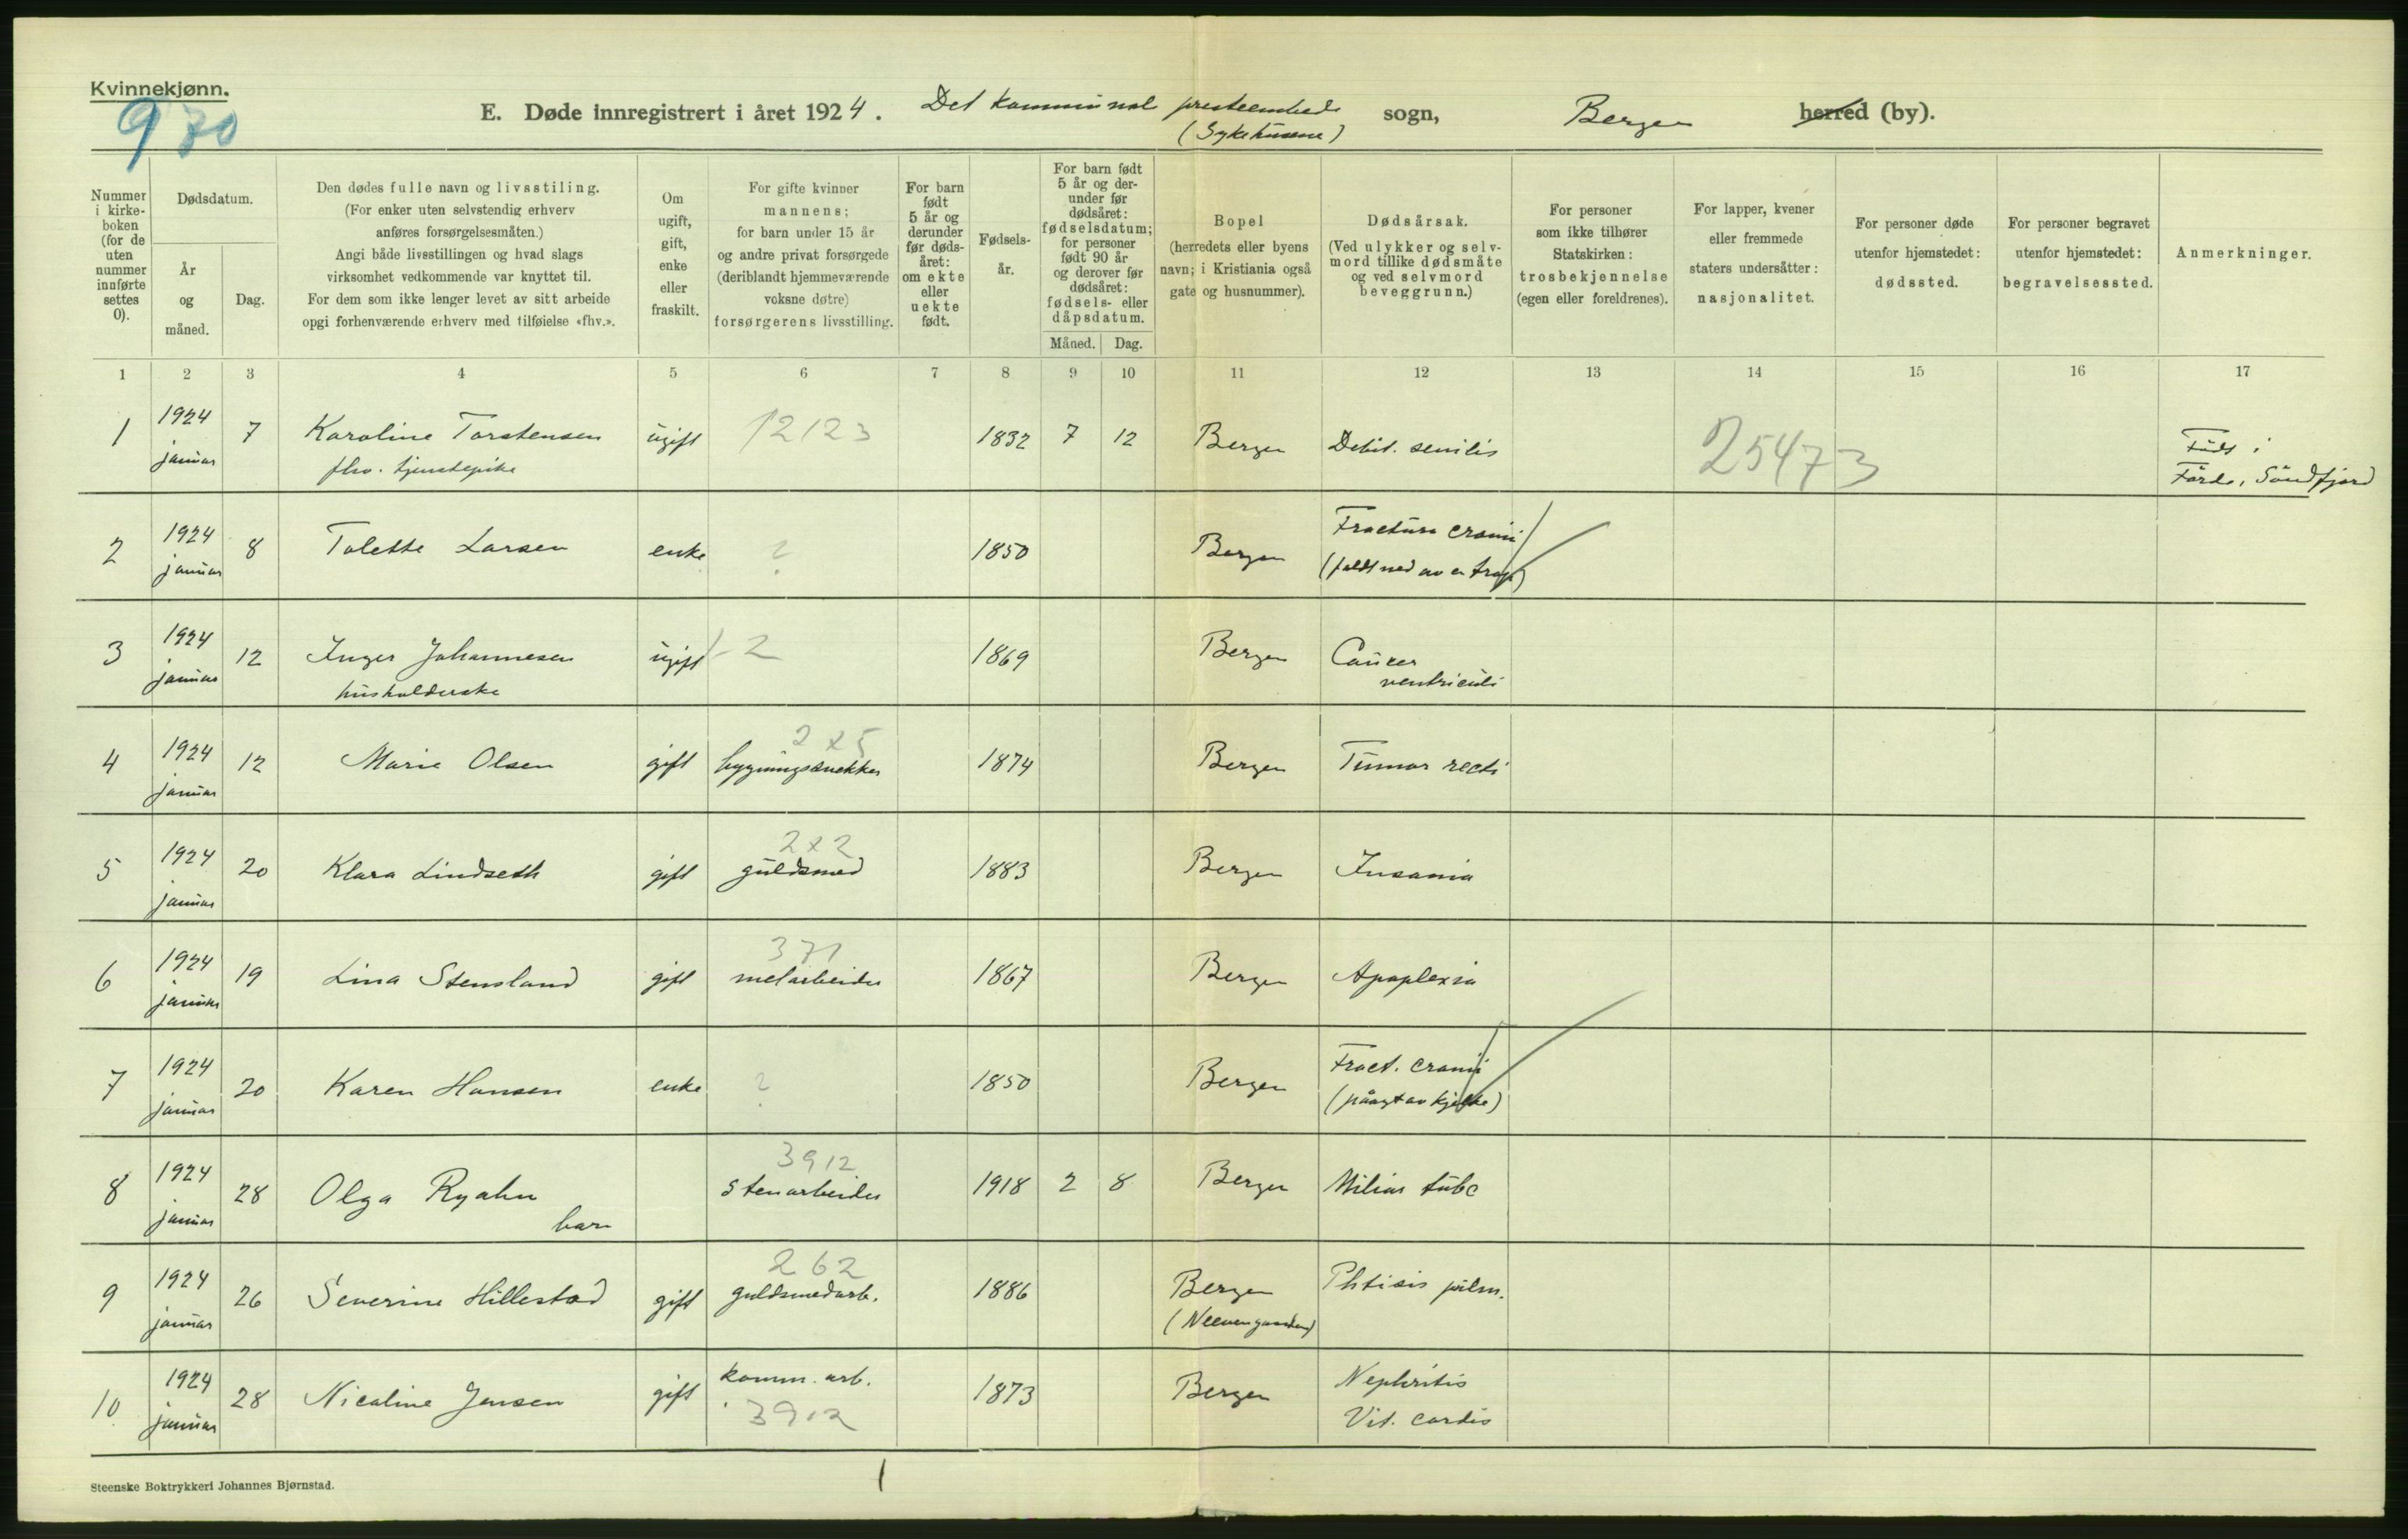 Kvinnekjønn.
970
E. Døde innregistrert i året 1924. Det kommunale presteembede sogn, Bergen herred (by).
(Sykehusene)
Nummer i kirkeboken (for de uten nummer innførte settes 0).
Dødsdatum.
År og måned.
Dag.
Den dødes fulle navn og livsstiling.
(For enker uten selvstendig erhverv
anføres forsørgelsesmåten.)
Angi både livsstillingen og hvad slags
virksomhet vedkommende var knyttet til.
For dem som ikke lenger levet av sitt arbeide
opgi forhenværende erhverv med tilføielse «fhv.».
Om ugift, gift, enke eller fraskilt.
For gifte kvinner
mannens;
for barn under 15 år
og andre privat forsørgede
(deriblandt hjemmeværende
voksne døtre)
forsørgerens livsstilling.
For barn født 5 år og derunder før dødsåret: om ekte eller uekte født.
Fødselsår.
For barn født 5 år og derunder før dødsåret: fødselsdatum; for personer født 90 år og derover før dødsåret: fødsels- eller dåpsdatum.
Måned. Dag.
Bopel
(herredets eller byens
navn; i Kristiania også
gate og husnummer).
Dødsårsak.
(Ved ulykker og selvmord tillike dødsmåte
og ved selvmord
beveggrunn.)
For personer
som ikke tilhører
Statskirken:
trosbekjennelse
(egen eller foreldrenes).
For lapper, kvener
eller fremmede
staters undersåtter:
nasjonalitet.
For personer døde
utenfor hjemstedet:
dødssted.
For personer begravet
utenfor hjemstedet:
begravelsessted.
Anmerkninger.
1 2 3 4 5 6 7 8 9 10 11 12 13 14 15 16 17
1 1924 januar 7 Karoline Torstensen ugift 12123 1832 7 12 Bergen Debil. senilis 25473 Født i
fhv. tjenestepike Førde, Søndfjord
2 1924 januar 8 Tolette Larsen enke ? 1850 Bergen Fractura cranii
(faldt ned av en trap)
3 1924 januar 12 Inger Johannesen ugift -2 1869 Bergen Cancer
husholderske ventriculi
4 1924 januar 12 Marie Olsen gift 2x5 bygningssnekker 1874 Bergen Tumor recti
5 1924 januar 20 Klara Lindseth gift 2x2 guldsmed 1883 Bergen Insania
6 1924 januar 19 Lina Stensland gift 371 melarbeider 1867 Bergen Apoplexia
7 1924 januar 20 Karen Hansen enke ? 1850 Bergen Fract. cranii
(påagt av kjelke)
8 1924 januar 28 Olga Ryahn 3912 stenarbeider 1918 2 8 Bergen Miliar tubc
barn
9 1924 januar 26 Severine Hillestad gift 262 guldsmedarb. 1886 Bergen Phtisis pulm.
(Neevengaarden)
10 1924 januar 28 Nicoline Jensen gift komm. arb. 1873 Bergen Nephritis
3912 Vit. cordis
Steenske Boktrykkeri Johannes Bjørnstad.
1